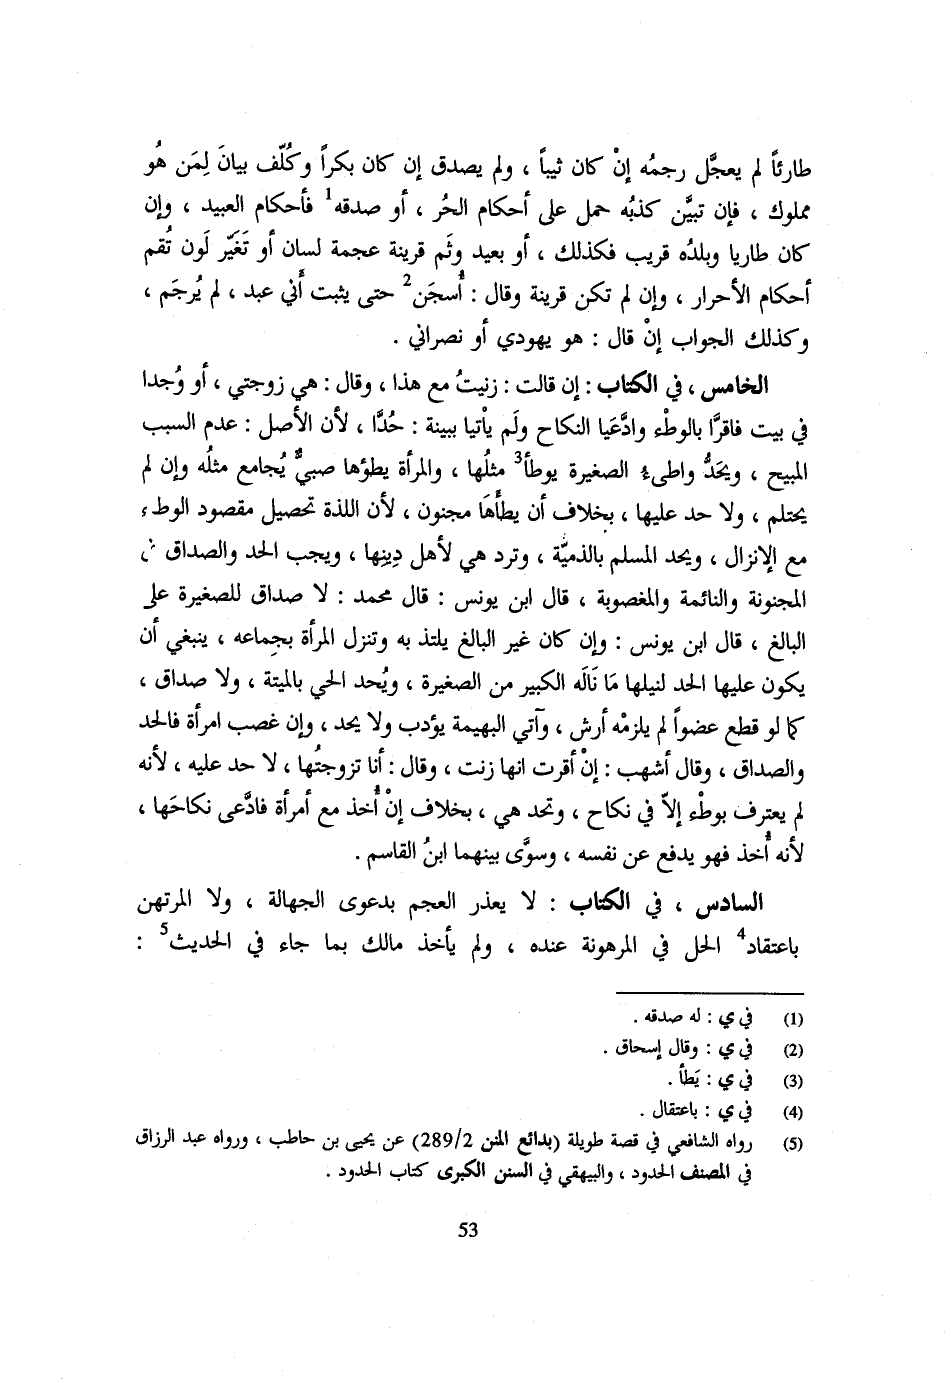 طارئاً لم يعجَّل رجمُه إنْ كان ثيباً ، ولم يصدق إن كان بكراً وكُلّف بيانَ لِمَن هُو
مملوك ، فإن تبيَّن كذبُه حمل على أحكام الحُر ، أو صدقه1 فأحكام العبيد ، وإن
كان طاريا وبلدُه قريب فكذلك ، أو بعيد وثَم قرينة عجمة لسان أو تَغَيّر لَون تُقم
أحكام الأحرار ، وإن لم تكن قرينة وقال : أُسجَن2 حتى يثبت أَني عبد ، لم يُرجَم ،
وكذلك الجواب إنْ قال : هو يهودي أو نصراني .
الخامس ، في الكتاب : إن قالت : زنيتُ مع هذا ، وقال : هي زوجتي ، أو وُجدا
في بيت فاقرَّا بالوطْء وادَّعَيا النكاح ولَم يأْتيا ببينة : حُدَّا ، لأن الأصل : عدم السبب
المبيح ، ويحَدُّ واطىء الصغيرة يوطأ3 مثلُها ، والمرأة يطؤها صبيٌّ يُجامع مثلُه وإن لم
يحتلم ، ولا حد عليها ، بخلاف أن يطأَهَا مجنون ، لأن اللذة تحصيل مقصود الوطء
مع الإنزال ، ويحد المسلم بالذميَّة ، وترد هي لأهل دِينِها ، ويجب الحد والصداق في
المجنونة والنائمة والمغصوبة ، قال ابن يونس : قال محمد : لا صداق للصغيرة على
البالغ ، قال ابن يونس : وإن كان غير البالغ يلتذ به وتنزل المرأة بجماعه ، ينبغي أن
يكون عليها الحد لنيلها مَا نَالَه الكبير من الصغيرة ، ويُحد الحي بالميتة ، ولا صداق ،
كما لو قطع عضواً لم يلزمْه أرش ، وآتي البهيمة يؤدب ولا يحد ، وإن غصب امرأة فالحد
والصداق ، وقال أشهب : إنْ أقرت انها زنت ، وقال : أنا تزوجتُها ، لا حد عليه ، لأنه
لم يعترف بوطْء إلاّ في نكاح ، وتحد هي ، بخلاف إنْ أُخذ مع أمرأة فادَّعى نكاحَها ،
لأنه أُخذ فهو يدفع عن نفسه ، وسوَّى بينهما ابنُ القاسم .
السادس ، في الكتاب : لا يعذر العجم بدعوى الجهالة ، ولا المرتهن
باعتقاد4 الحل في المرهونة عنده ، ولم يأخذ مالك بما جاء في الحديث5 :
(1) في ي : له صدقه .
(2) في ي : وقال إسحاق .
(3) في ي : يَطأ .
(4) في ي : باعتقال .
(5) رواه الشافعي في قصة طويلة (بدائع المنن 289/2) عن يحيى بن حاطب ، ورواه عبد الرزاق
في المصنف الحدود ، والبيهقي في السنن الكبرى كتاب الحدود .
53